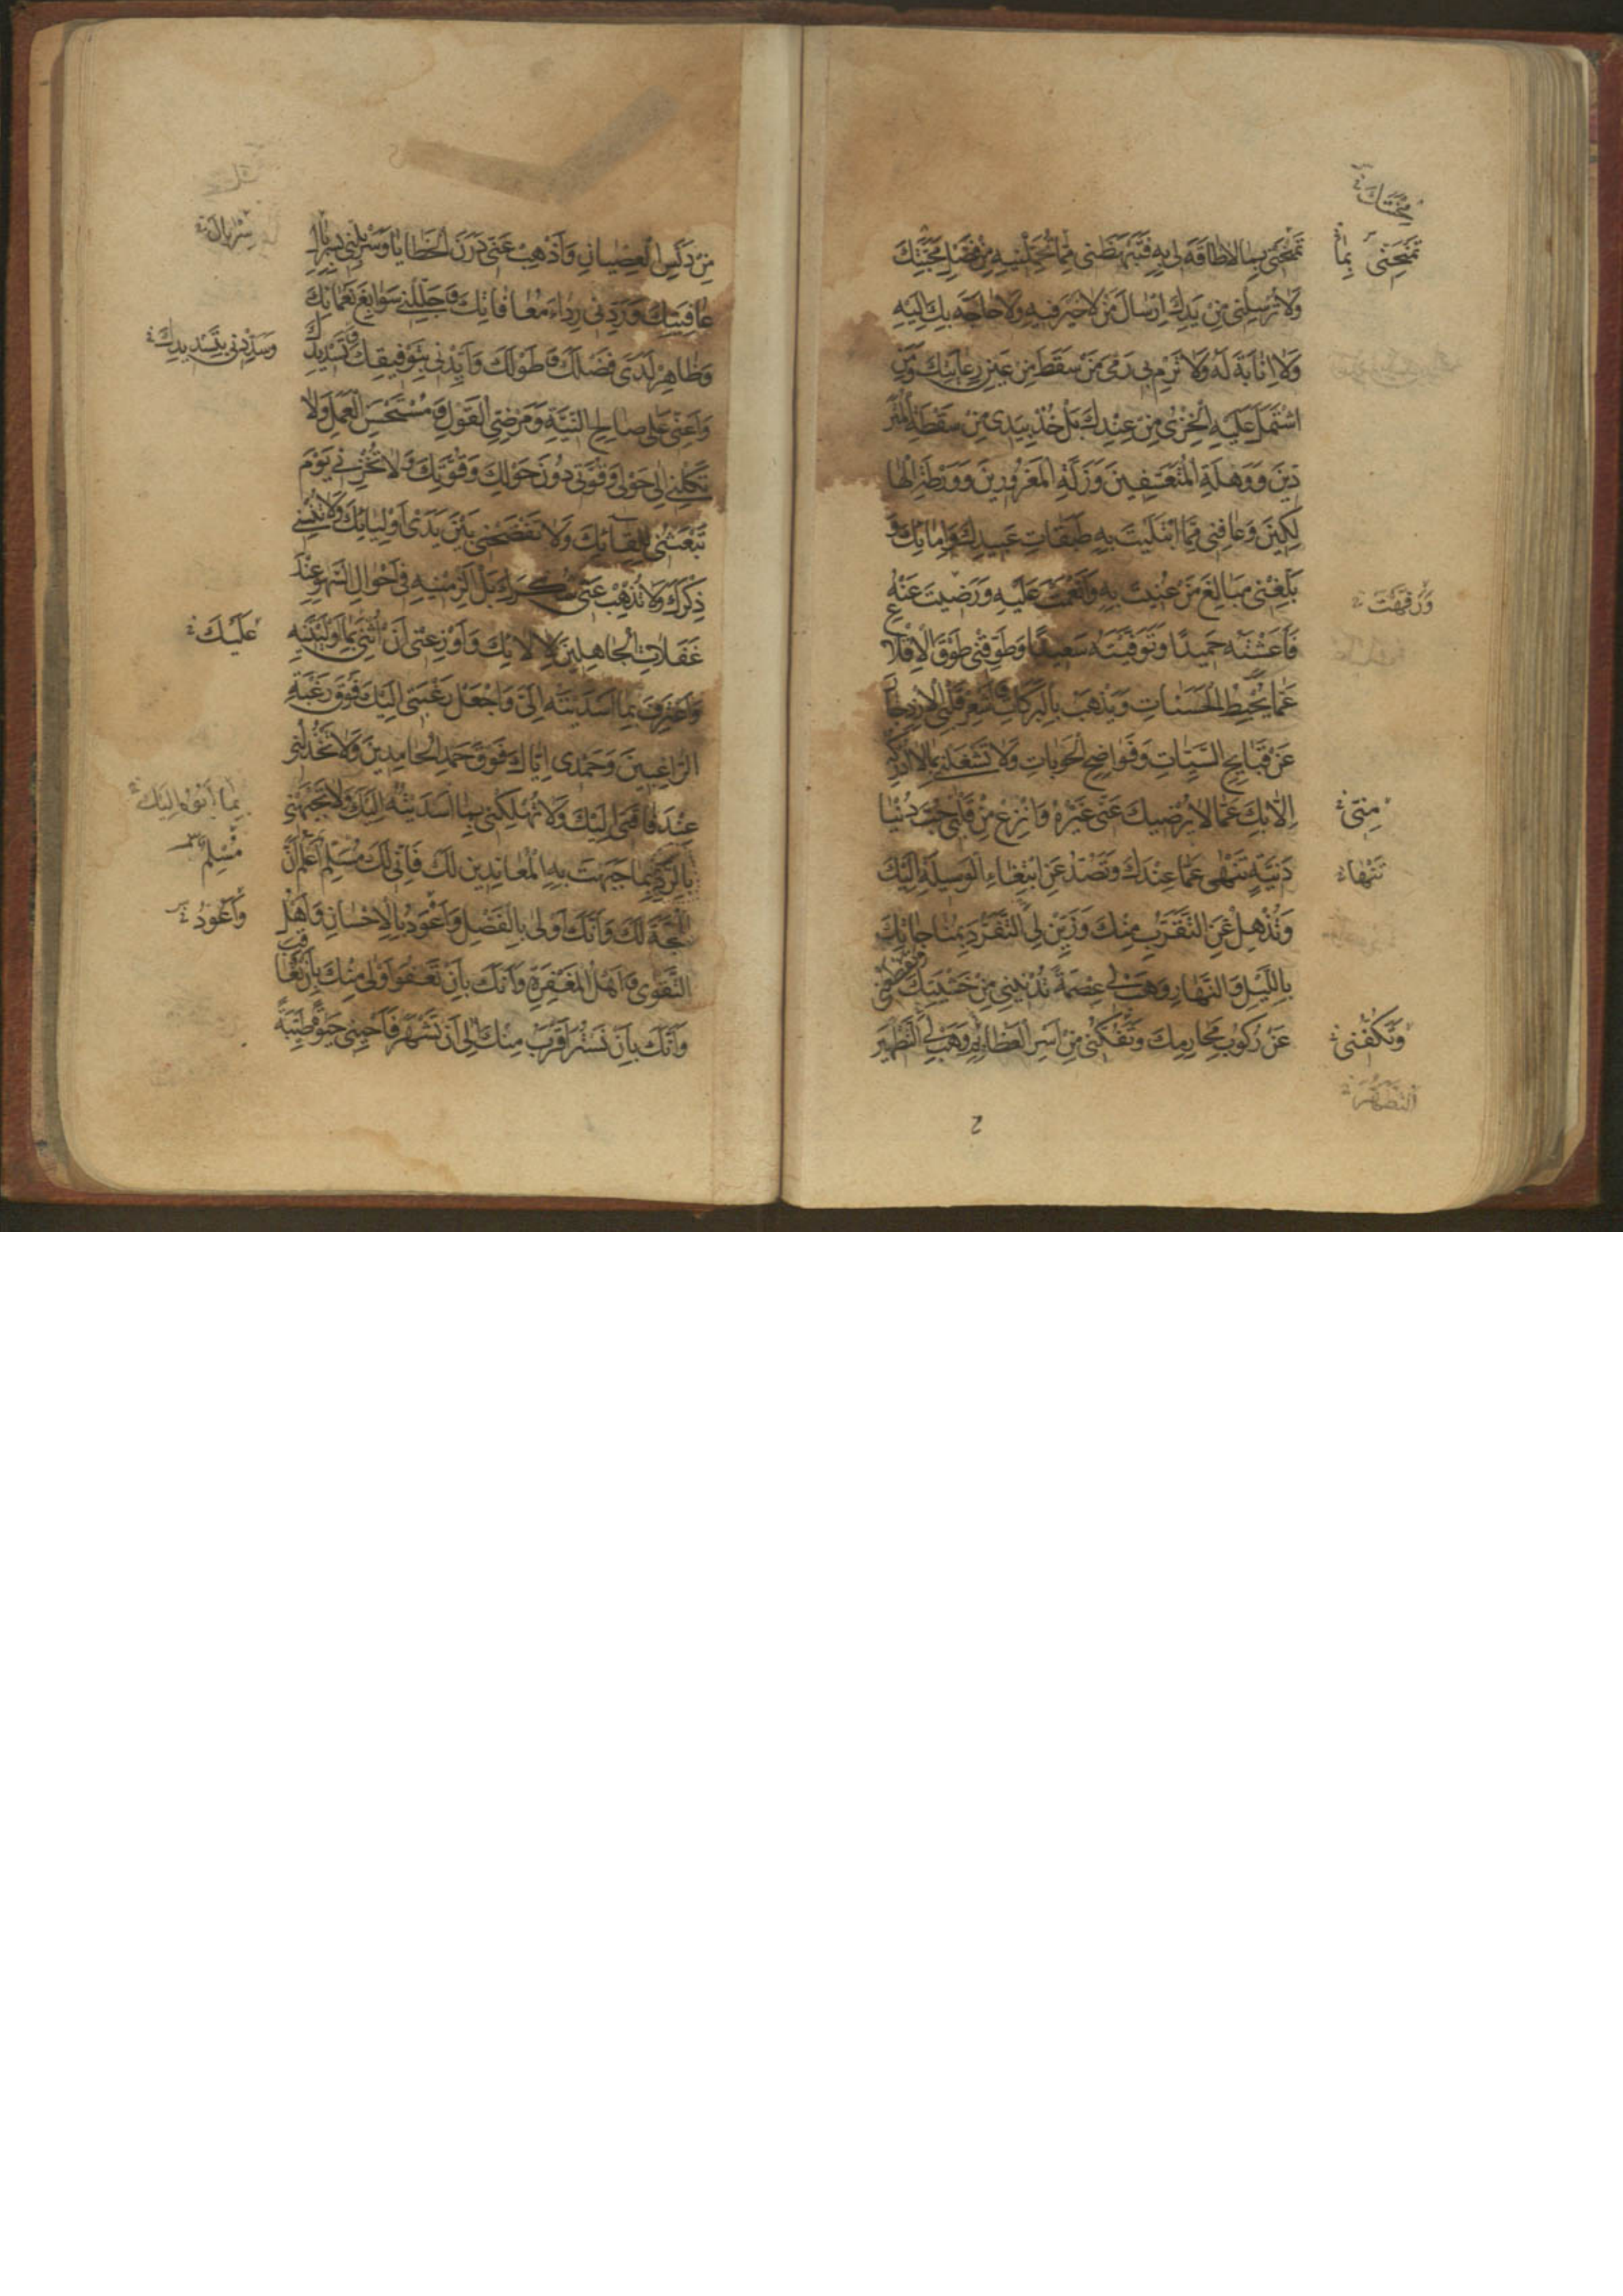 تَمْنَحْنی بِمَا لَا طَاقَةَ لِی بِهِ فَتَبْهَظَنی مِمَّا تُحَمِّلُنیهِ مِنْ فَضْلِ مَحَبَّتِكَ
وَلَا تُرْسِلْنی مِنْ یَدِكَ اِرْسَالَ مَنْ لَا خَیْرَ فیهِ وَلَا حَاجَةَ بِكَ اِلَیْهِ
وَلَا اِنَابَةَ لَهُ وَلَا تَرْمِ بی رَمْیَ مَنْ سَقَطَ مِنْ عَیْنِ رِعَایَتِكَ وَمَنِ
اشْتَمَلَ عَلَیْهِ الْخِزْیُ مِنْ عِنْدِكَ بَلْ خُذْ بِیَدی مِنْ سَقْطَةِ الْمُتَرَ
دّینَ وَوَهْلَةِ الْمُتَعَسِّفینَ وَزَلَّةِ الْمَغْرُورینَ وَوَرْطَةِ الْهَا
لِكینَ وَعَافِنی مِمَّا ابْتَلَیْتَ بِهِ طَبَقَاتِ عَبیدِكَ وَاِمَائِكَ وَ
بَلِّغْنی مَبَالِغَ مَنْ عُنیتَ بِهِ وَاَنْعَمْتَ عَلَیْهِ وَرَضیتَ عَنْهُ
فَاَعَشْتَهُ حَمیدًا وَتَوَفَّیْتَهُ سَعیدًا وَطَوِّقْنی طَوْقَ الْاِقْلَا
عِ عَمَّا یُحْبِطُ الْحَسَنَاتِ وَیَذْهَبُ بِالْبَرَكَاتِ وَاَشْعِرْ قَلْبِیَ الْاِزْدِجَا
رَ عَنْ قَبَایِحِ السَّیِّئَاتِ وَفَوَاضِحِ الْحَوْبَاتِ وَلَا تَشْغَلْنی بِمَا لَا اُدْرِكُهُ
اِلَّا بِكَ عَمَّا لَا یُرْضیكَ عَنّی غَیْرُهُ وَانْزِعْ مِنْ قَلْبی حُبَّ دُنْیَا
دَنِیَّةٍ تَنْهَی عَمَّا عِنْدَكَ وَتَصُدُّ عَنِ ابْتِغَاءِ الْوَسیلَةِ اِلَیْكَ
وَتُذْهِلُ عَنِ التَّقَرُّبِ مِنْكَ وَزَیِّنْ لِیَ التَّفَرُّدَ بِمُنَاجَاتِكَ
بِاللَّیْلِ وَالنَّهَارِ وَهَبْ لی عِصْمَةً تُدْنینی مِنْ خَشْیَتِكَ وَتَقْطَعُنی
عَنْ رُكُوبِ مَحَارِمِكَ وَتَفُكُّنی مِنْ اَسْرِ الْعَظَائِمِ وَهَبْ لِیَ التَّطْهیرَ
مَحَبَّتِكَ
تَمْتَحِنّی بِمَا
وَرَفَّهْتَ
مِنّی
تَنْهَا
وَتَكْفِنی
التَّطَهُّرَ
مِنْ دَنَسِ الْعِصْیَانِ وَاَذْهِبْ عَنّی دَرَنَ الْخَطَایَا وَسَرْبِلْنی بِسِرْبَالِ
عَافِیَتِكَ وَرَدِّنی رِدَاءَ مُعَافَاتِكَ وَجَلِّلْنی سَوَابِغَ نَعْمَائِكَ
وَظَاهِرْ لَدَیَّ فَضْلَكَ وَطَوْلَكَ وَاَیِّدْنی بِتَوْفیقِكَ وَتَسْدیدِكَ
وَاَعِنّی عَلَی صَالِحِ النِّیَّةِ وَمَرْضِیِّ الْقَوْلِ وَمُسْتَحْسَنِ الْعَمَلِ وَلَا
تَكِلْنی اِلَی حَوْلی وَقُوَّتی دُونَ حَوْلِكَ وَقُوَّتِكَ وَلَا تُخْزِنی یَوْمَ
تَبْعَثُنی لِلِقَائِكَ وَلَا تَفْضَحْنی بَیْنَ یَدَیْ اَوْلِیَائِكَ وَلَا تُنْسِنی
ذِكْرَكَ وَلَا تُذْهِبْ عَنّی شُكْرَكَ بَلْ اَلْزِمْنیهِ فی اَحْوَالِ السَّهْوِ عِنْدَ
غَفَلَاتِ الْجَاهِلینَ لِآلَائِكَ وَاَوْزِعْنی اَنْ اُثْنِیَ بِمَا اَوْلَیْتَنیهِ
وَاَعْتَرِفَ بِمَا اَسْدَیْتَهُ اِلَیَّ وَاجْعَلْ رَغْبَتی اِلَیْكَ فَوْقَ رَغْبَةِ
الرَّاغِبینَ وَحَمْدی اِیَّاكَ فَوْقَ حَمْدِ الْحَامِدینَ وَلَا تَخْذُلْنی
عِنْدَ فَاقَتی اِلَیْكَ وَلَا تُهْلِكْنی بِمَا اَسْدَیْتُهُ اِلَیْكَ وَلَا تَجْبَهْنی
بِالرَّدِّ بِمَا جَبَهْتَ بِهِ الْمُعَانِدینَ لَكَ فَاِنّی لَكَ مُسَلِّمٌ اَعْلَمُ اَنَّ
الْحُجَّةَ لَكَ وَاَنَّكَ اَوْلَی بِالْفَضْلِ وَاَعْوَدُ بِالْاِحْسَانِ وَاَهْلُ
التَّقْوَی وَاَهْلُ الْمَغْفِرَةِ وَاَنَّكَ بِاَنْ تَعْفُوَ اَوْلَی مِنْكَ بِاَنْ تُعَاقِبَ
وَاَنَّكَ بِاَنْ تَسْتُرَ اَقْرَبُ مِنْكَ اِلَی اَنْ تَشْهَرَ فَاَحْیِنی حَیَوةً طَیِّبَةً
سِرْبَالَ
وَسَدِّدْنی بِتَسْدیدِكَ
عَلَیْكَ
مُسْلِمٌ
وَاَعُوذُ